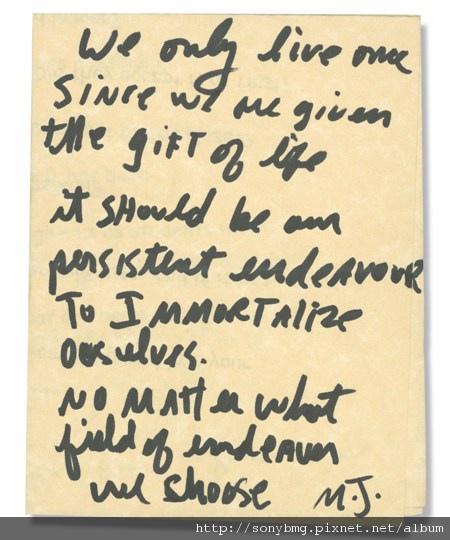 We only live once
Since we are given
the gift of life
it should be our
persistent endeavour
To Immortalize
ourselves.
NO MAtter what
field of endeavor
we shoose
M.J.
http://sonybmg.pixnet.net/album